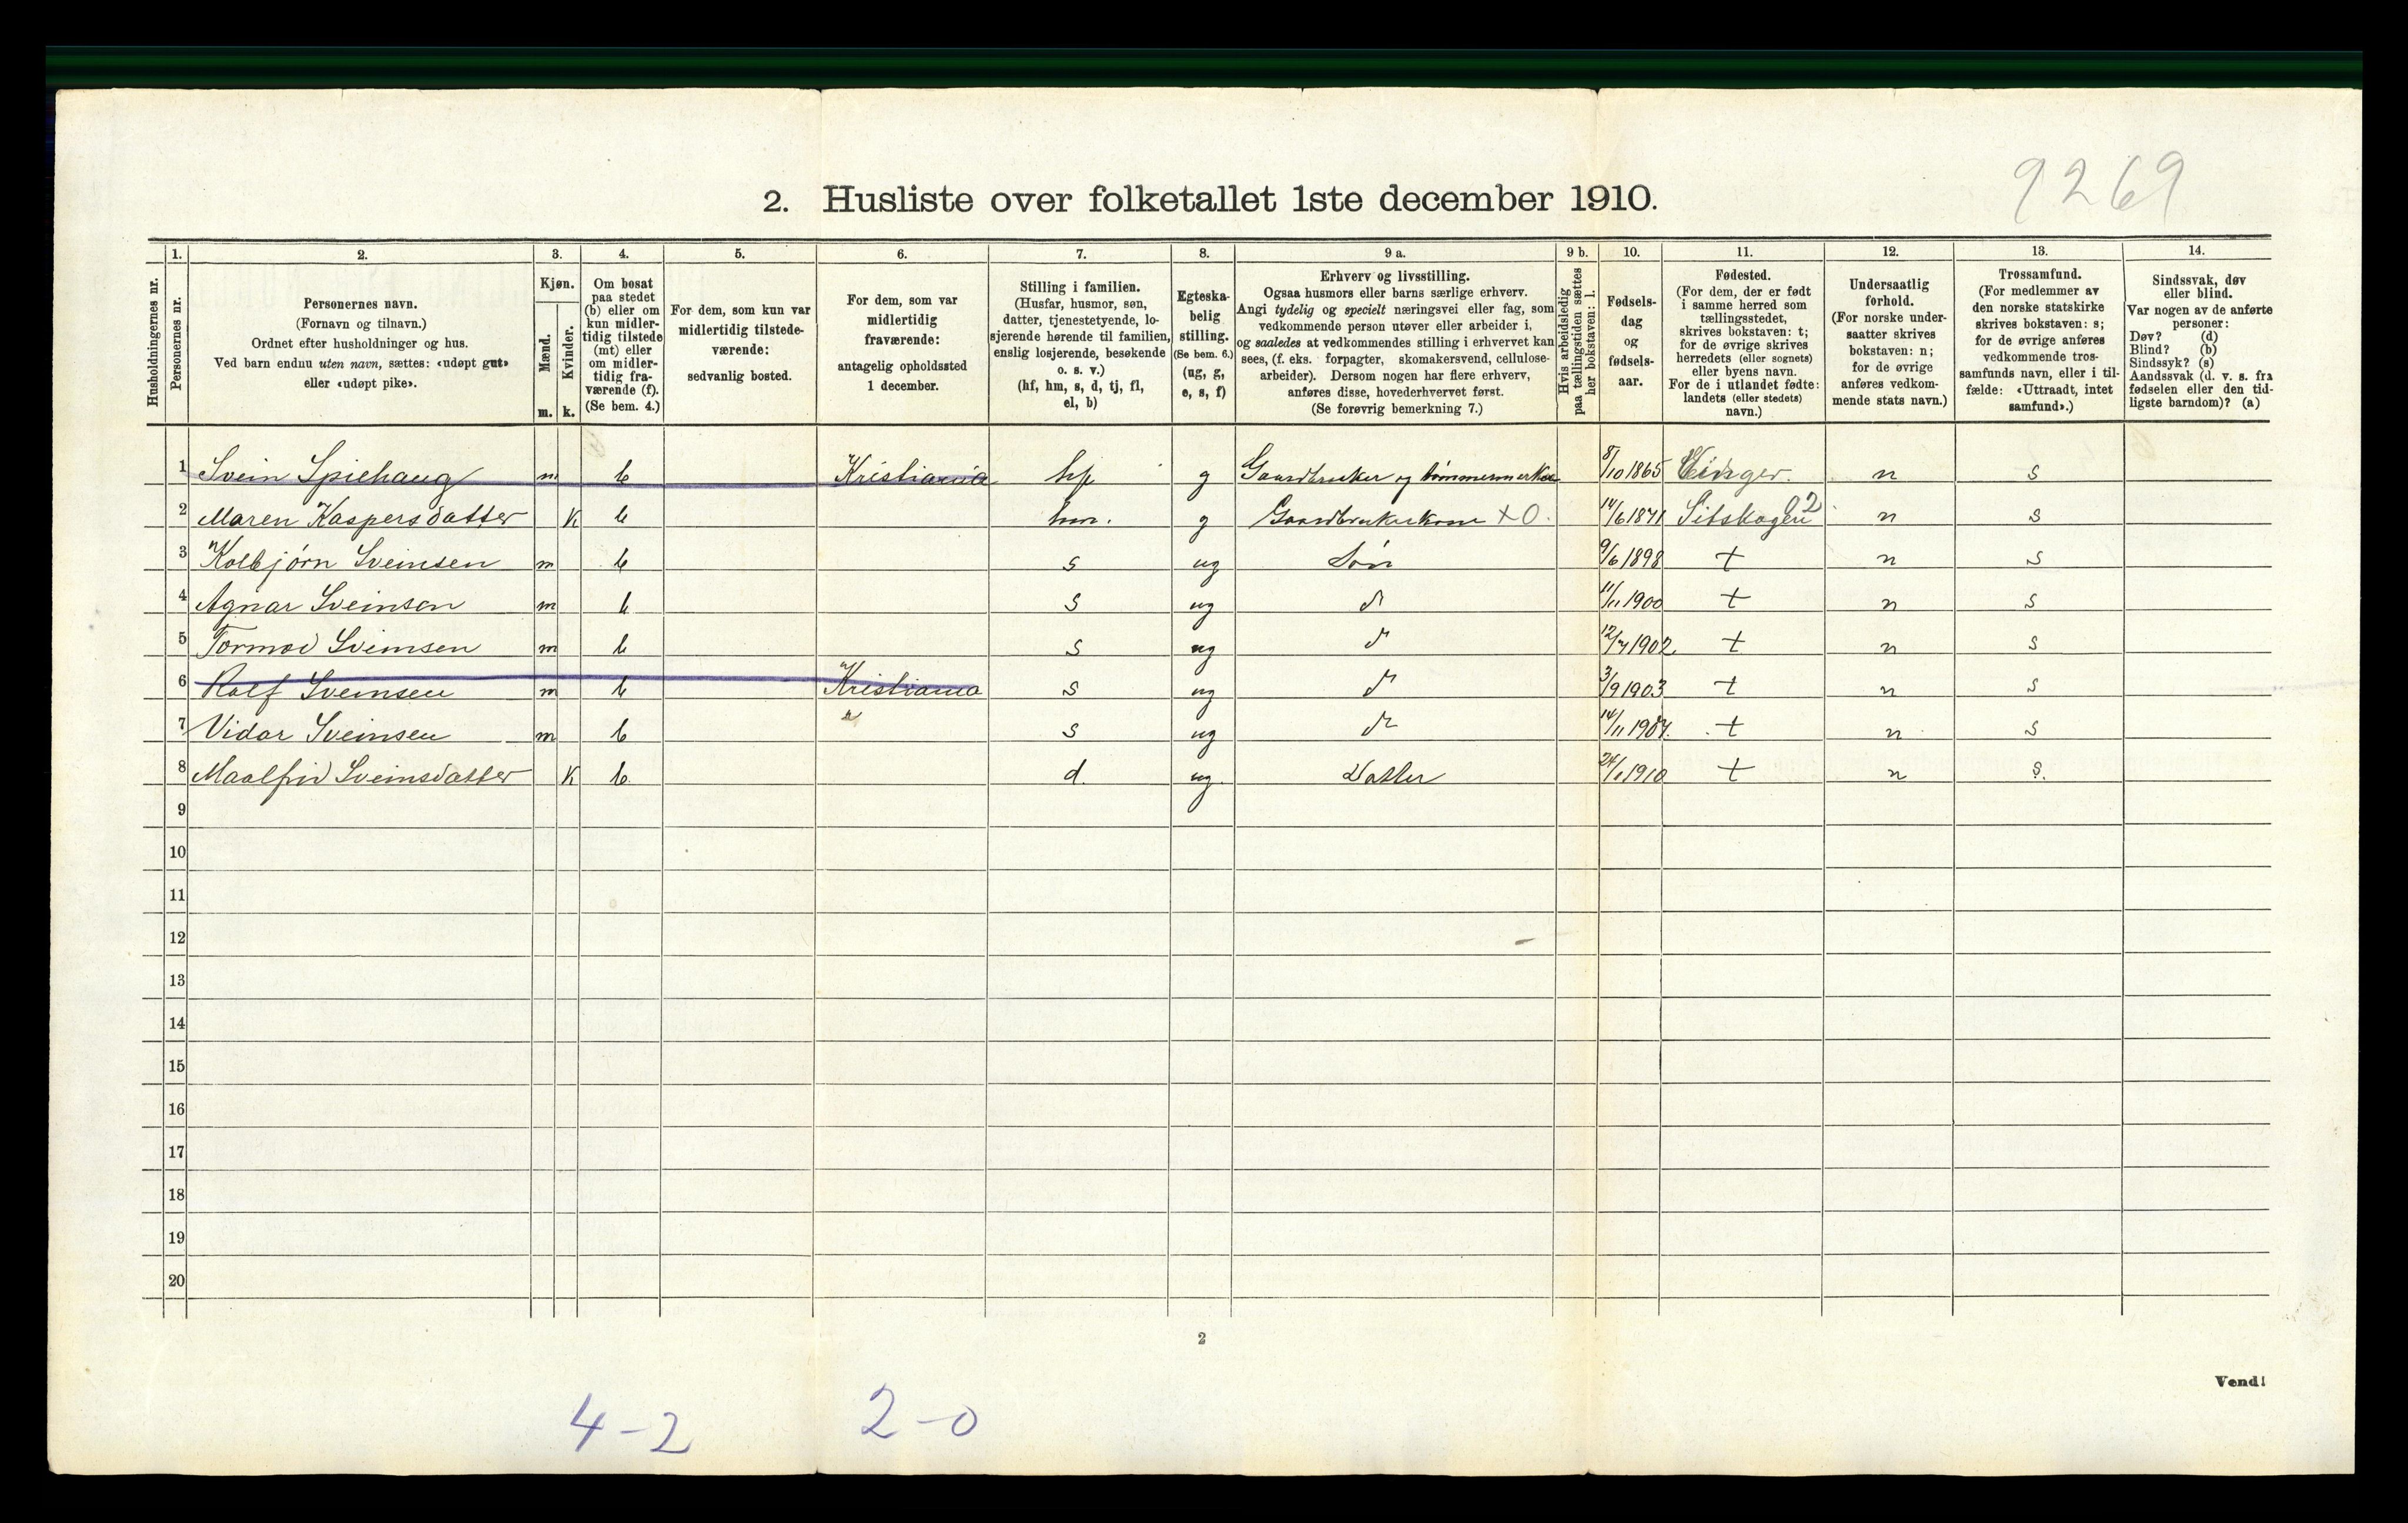 9269
2. Husliste over folketallet 1ste december 1910.
Husholdningernes nr.
1.
Personernes nr.
2.
Personernes navn.
(Fornavn og tilnavn.)
Ordnet efter husholdninger og hus.
Ved barn endnu uten navn, sættes: «udøpt gut»
eller «udøpt pike».
3.
Kjøn.
Mænd.
m.
Kvinder.
k.
4.
Om bosat
paa stedet
(b) eller om
kun midler-
tidig tilstede
(mt) eller
om midler-
tidig fra-
værende (f).
(Se bem. 4.)
5.
For dem, som kun var
midlertidig tilstede-
værende:
sedvanlig bosted.
6.
For dem, som var
midlertidig
fraværende:
antagelig opholdssted
1 december.
7.
Stilling i familien.
(Husfar, husmor, søn,
datter, tjenestetyende, lo-
sjerende hørende til familien,
enslig losjerende, besøkende
o. s. v.)
(hf, hm, s, d, tj, fl,
el, b)
8.
Egteska-
belig
stilling.
(Se bem. 6.)
(ug, g,
e, s, f)
9 a.
Erhverv og livsstilling.
Ogsaa husmors eller barns særlige erhverv.
Angi tydelig og specielt næringsvei eller fag, som
vedkommende person utøver eller arbeider i,
og saaledes at vedkommendes stilling i erhvervet kan
sees, (f. eks. forpagter, skomakersvend, cellulose-
arbeider). Dersom nogen har flere erhverv,
anføres disse, hovederhvervet først.
(Se forøvrig bemerkning 7.)
9 b.
Hvis arbeidsledig
paa tællingstiden sættes
her bokstaven: l.
10.
Fødsels-
dag
og
fødsels-
aar.
11.
Fødested.
(For dem, der er født
i samme herred som
tællingsstedet,
skrives bokstaven: t;
for de øvrige skrives
herredets (eller sognets)
eller byens navn.
For de i utlandet fødte:
landets (eller stedets)
navn.)
12.
Undersaatlig
forhold.
(For norske under-
saatter skrives
bokstaven: n;
for de øvrige
anføres vedkom-
mende stats navn.)
13.
Trossamfund.
(For medlemmer av
den norske statskirke
skrives bokstaven: s;
for de øvrige anføres
vedkommende tros-
samfunds navn, eller i til-
fælde: «Uttraadt, intet
samfund».)
14.
Sindssvak, døv
eller blind.
Var nogen av de anførte
personer:
Døv? (d)
Blind? (b)
Sindssyk? (s)
Aandssvak (d. v. s. fra
fødselen eller den tid-
ligste barndom)? (a)
1 Svein Spiehaug m b Kristiania hf g Gaardbruker og tømmermerker 8/10 1865 Vinger. n s
2 Maren Kaspersdatter k b hm. g Gaardbrukerkone +0. 14/6 1871 Setskogen 02 n s
3 Kolbjørn Sveinsen m b s ug Søn 9/6 1898 t n s
4 Agnar Sveinsen m b s ug d° 11/11 1900 t n s
5 Tormod Sveinsen m b s ug d° 12/7 1902. t n s
6 Rolf Sveinsen m b Kristiania s ug d° 3/9 1903 t n s
7 Vidar Sveinsen m b " s ug d° 14/11 1907. t n s
8 Maalfrid Sveinsdatter k b. d. ug. Datter 24/1 1910 t n s.
9
10
11
12
13
14
15
16
17
18
19
20
2
Vend!
4-2 2-0